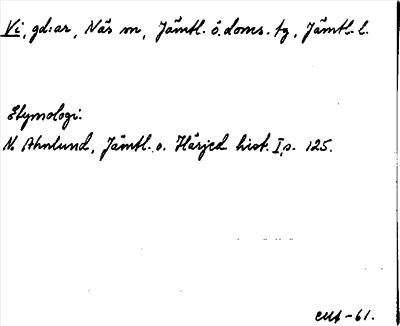 Vi, gd:ar, Näs sn, Jämtl. ö. doms. tg, Jämtl. l.
Etymologi:
N. Ahnlund, Jämtl. o. Härjed hist. I, s. 125.
-61.